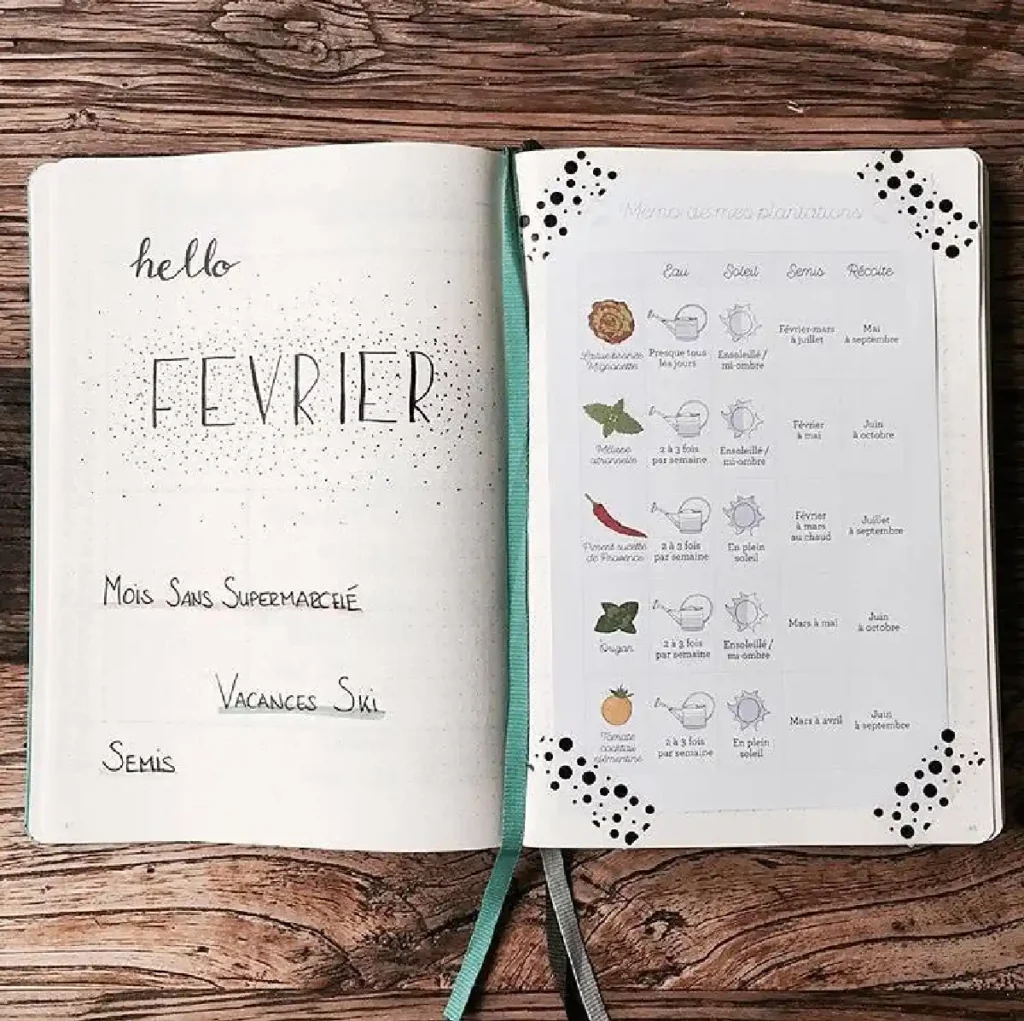 hello
FEVRIER
MOIS SANS SUPERMARCELÉ
VACANCES SKI
SEMIS
Mémo de mes plantations
Eau Soleil Semis Récolte
Mignonette
Presque tous
les jours
Ensoleillé /
mi-ombre
Février-mars
à juillet
Mai
à septembre
Mélisse
citronnelle
2 à 3 fois
par semaine
Ensoleillé /
mi-ombre
Février
à mai
Juin
à octobre
Piment sucette
de Provence
2 à 3 fois
par semaine
En plein
soleil
Février
à mars
au chaud
Juillet
à septembre
Origan
2 à 3 fois
par semaine
Ensoleillé /
mi-ombre
Mars à mai
Juin
à octobre
Tomate
cocktail
clémentine
2 à 3 fois
par semaine
En plein
soleil
Mars à avril
Juin
à septembre